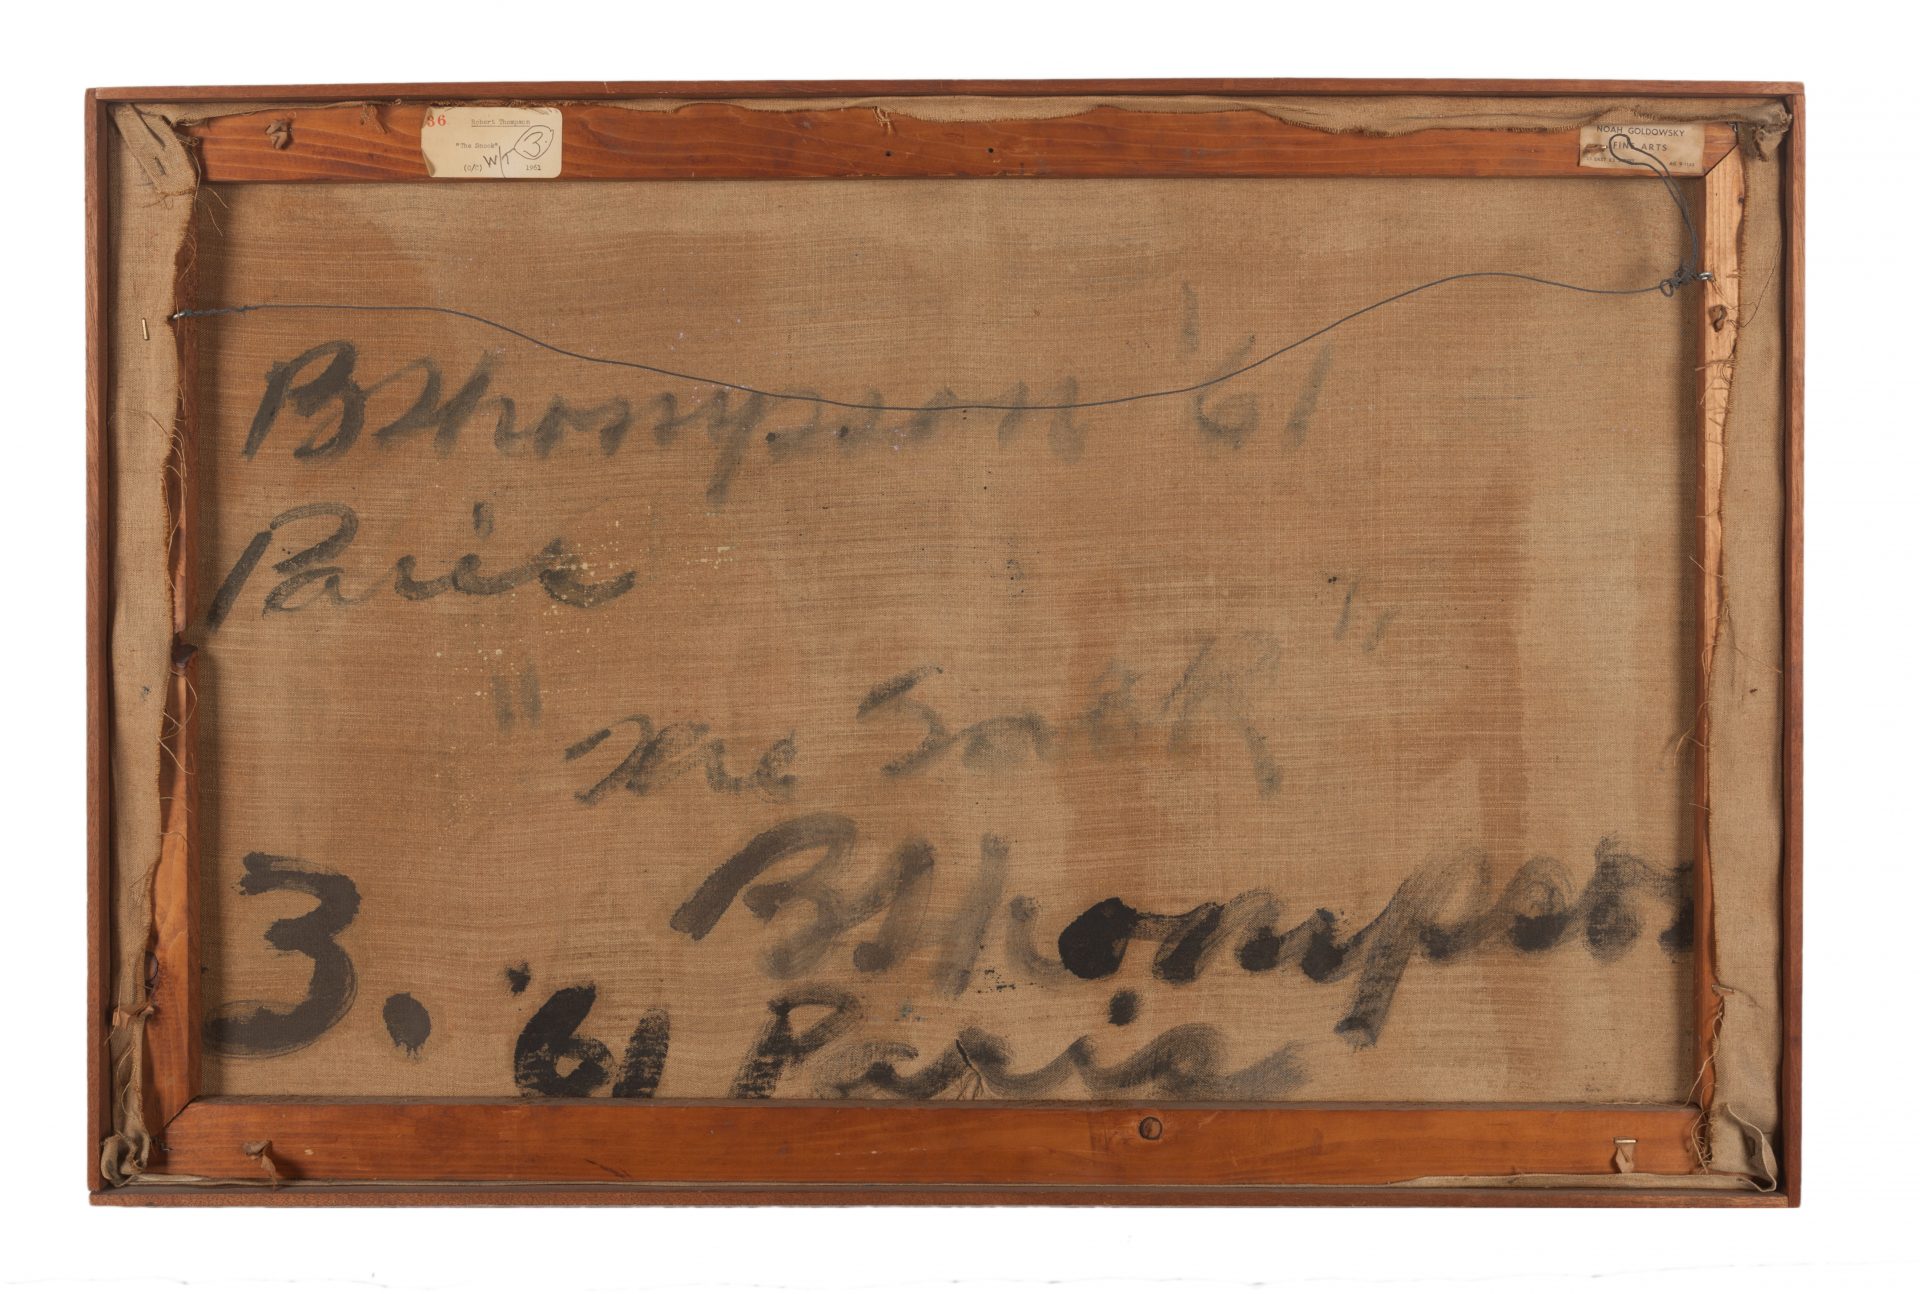 36 Robert Thompson
"The Snook"
3
(O/C) 1961
NOAH GOLDOWSKY
FINE ARTS
BThompson '61
Paris
"
"
3. BThompson
'61 Paris